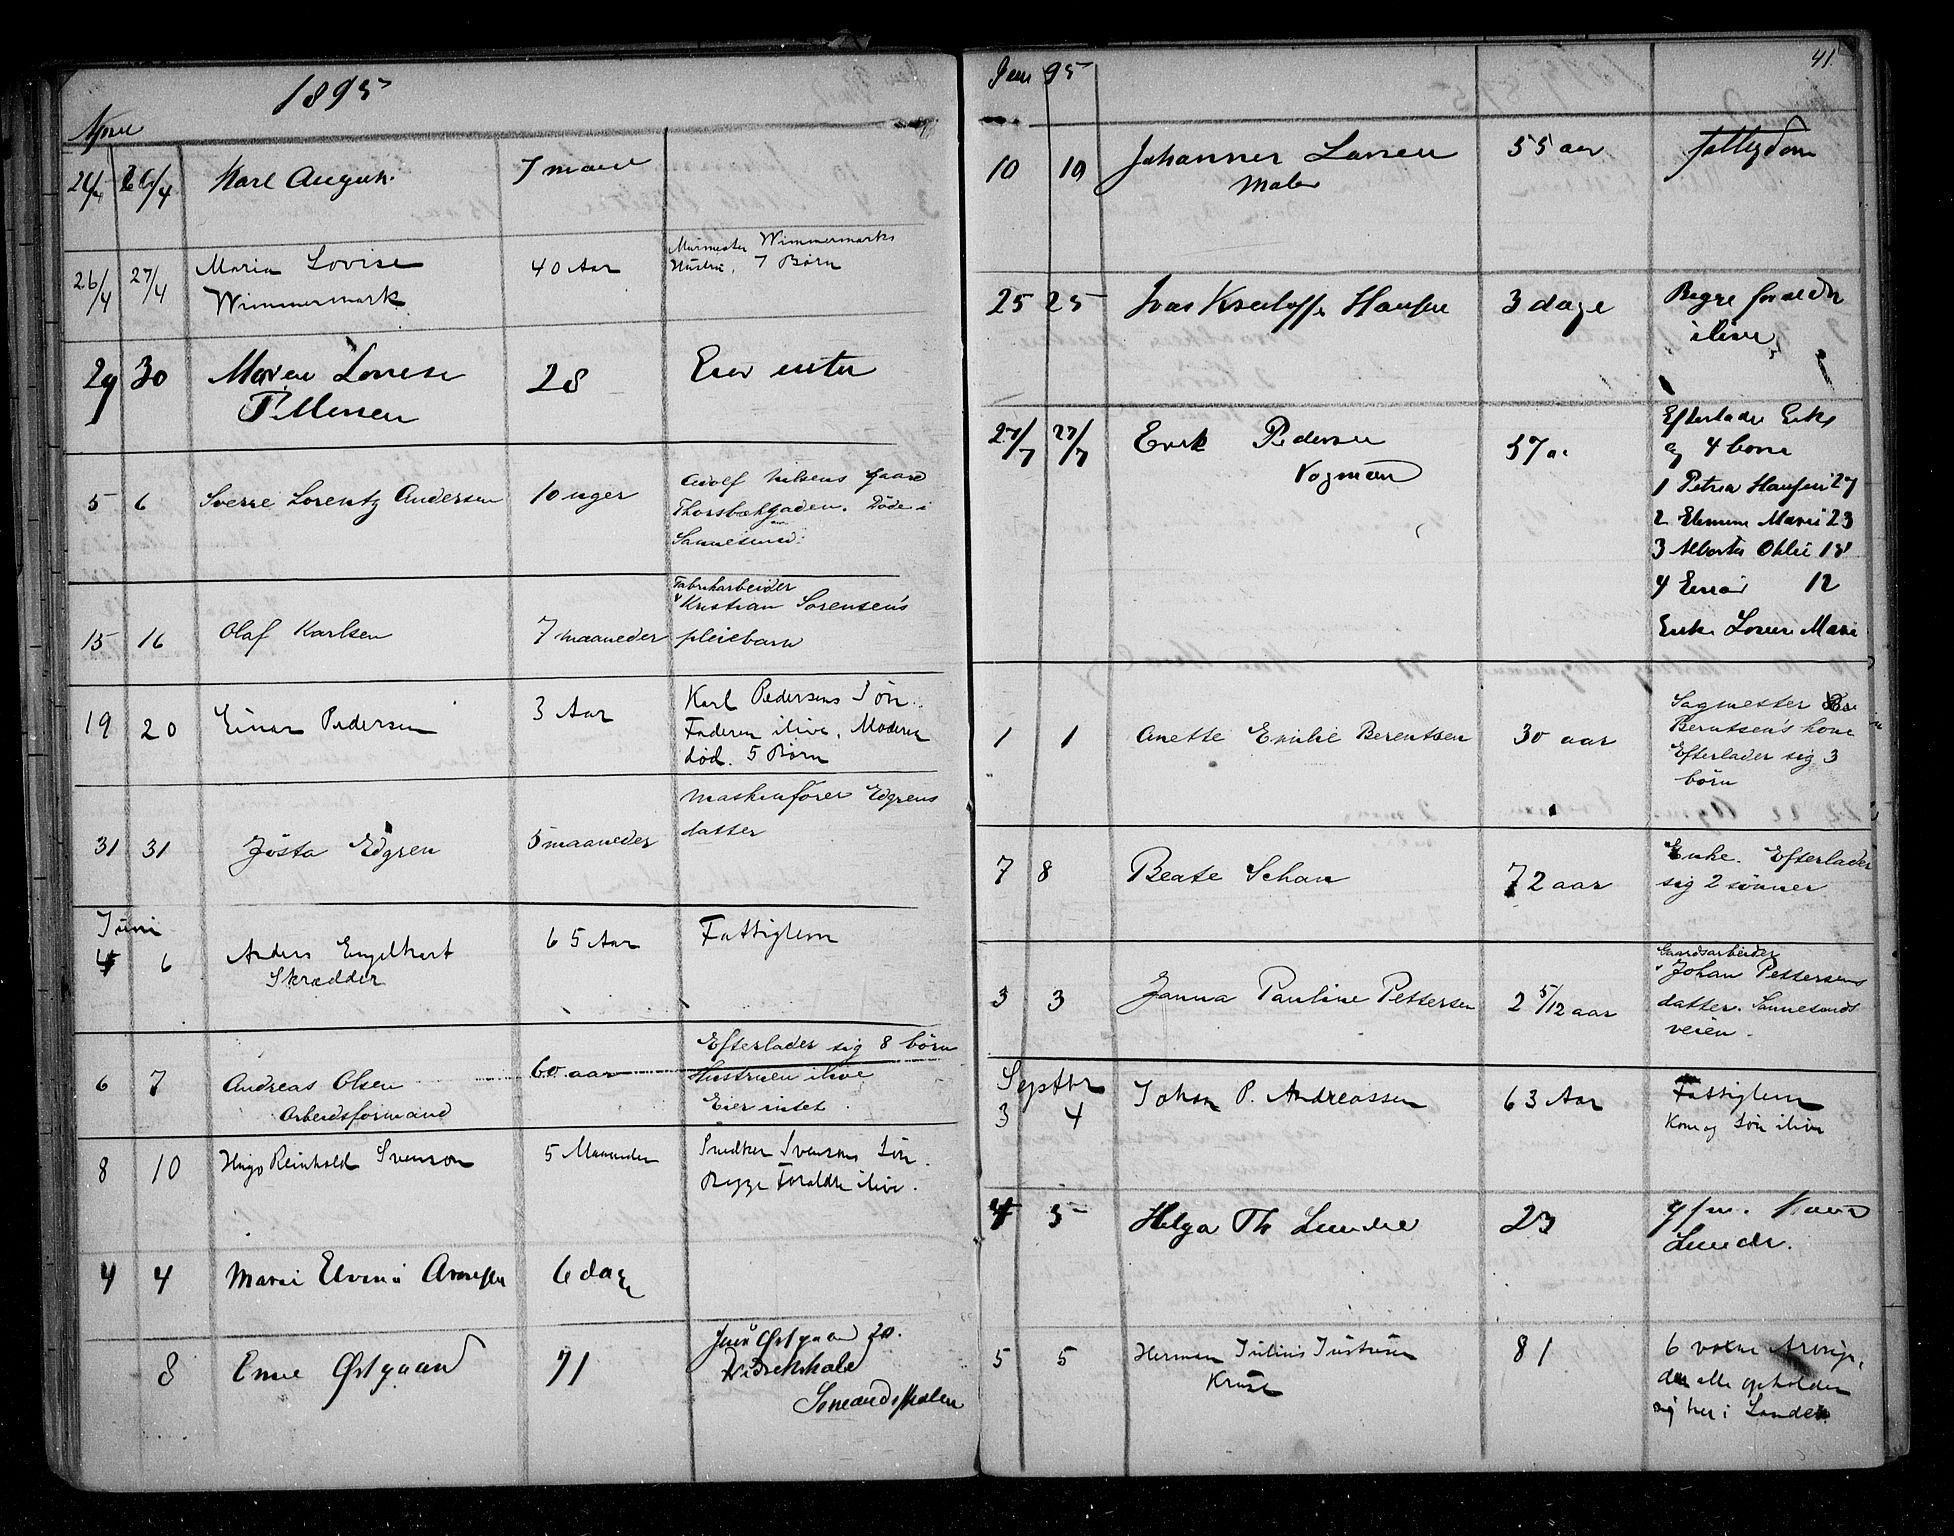 1895
April
26/4 26/4 Karl August 7 maan
26/4 27/4 Maria Lovise 40 Aar Murmester Wimmermarks
Wimmermark Hustru, 7 Børn
29 30 Maren Lovise 28 Eier intet
5 6 Sverre Lorentz Andersen 10 uger Adolf Nilsens Gaard
Thorsbækgaden. Døde i
Sannesund.
15 16 Olaf Karlsen 7 maaneder Fabrikarbeider
Kristian Sorensen's
pleiebarn
19 20 Einar Pedersen 3 Aar Karl Pedersens Søn.
Faderen ilive, Moderen
død. 5 Børn
31 31 Jösta Edgren 5 maaneder Maskinfører Edgrens
datter
Juni
4 6 Anders Engelhart 65 Aar Fattiglem
Skrædder
6 7 Andreas Olsen 60 aar Efterlader sig 8 börn
Arbeidsformand Hustruen ilive
Eier intet.
8 10 Hugo Reinhold Svenson 5 Maaneder Snedker Svensons Søn.
Begge Forældre ilive.
4 4 Marie Elvine 6 dage
8 Østgaard 71 Jens Østgaard
Sømandsskolen
41
95
10 19 Johannes Larsen 55 aar fattigdom
Maler
25 25 Ivar Kristoffer Hansen 3 dage Begge forældre
ilive
27/7 27/7 Erik Pedersen 57 a Efterlader Enke
Vogmand og 4 børn
1 Petrea Hansen 27
2 Marie 23
3 Alberta 18
4 Einar 12
Enke Lovise Marie
1 1 Anette Emilie Berentsen 30 aar Sagmester
Berntsen's kone
Efterlader sig 3
börn
7 8 Beate Schau 72 aar Enke. Efterlader
sig 2 sönner
3 3 Janna Pauline Pettersen 2 5/12 aar Gaardsarbeider
Johan Pettersens
datter. Sannesunds
veien.
Septbr
3 4 Johan P. Andreassen 63 Aar Fattiglem
Kone og Søn ilive
4 5 Helga Th Lunde 23 g/m.
Lunde.
5 5 Herman Julius Justusen 81 6 voksne Arvinger,
Kruse der alle opholder
sig her i Landet.